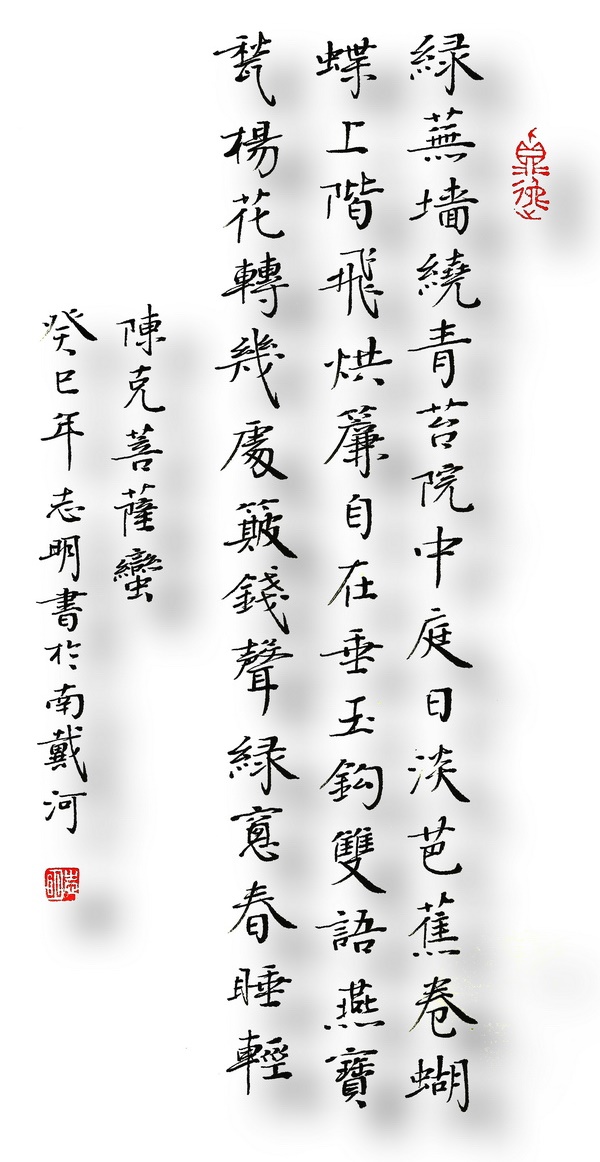 緑蕪墻繞青苔院中庭日淡芭蕉卷蝴
蝶上階飛烘簾自在垂玉鈎雙語燕寶
甃楊花轉幾處簸錢聲緑窓春睡輕
陳克菩薩蠻
癸巳年志明書於南戴河
志明